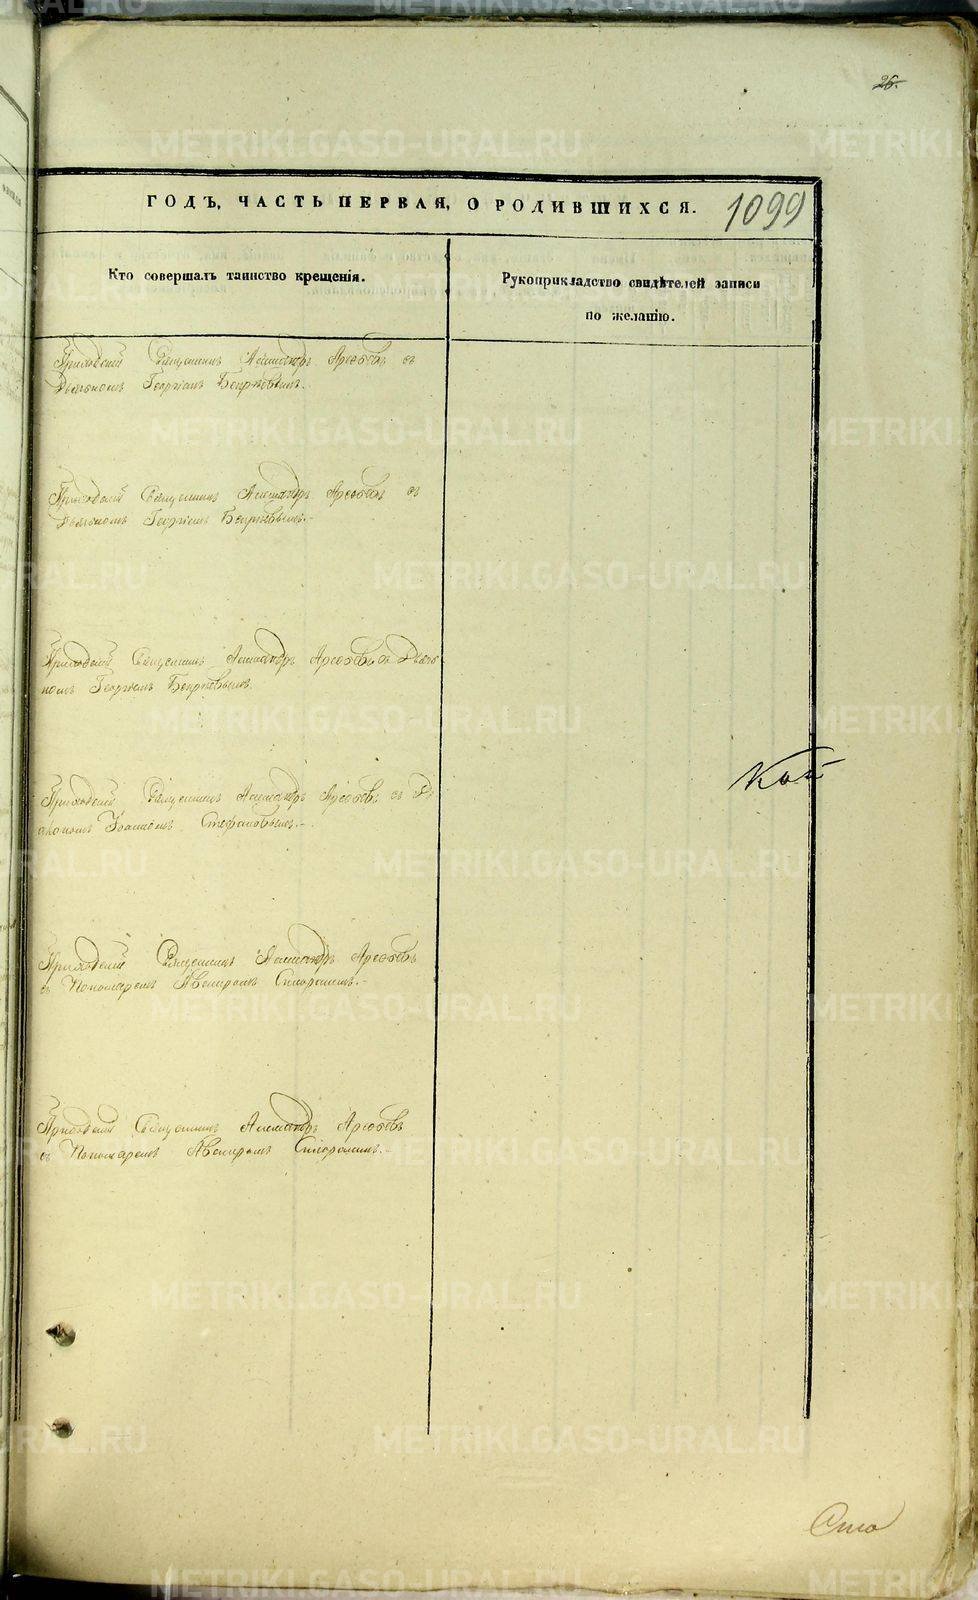 26.
ГОДЪ, ЧАСТЬ ПЕРВАЯ, О РОДИВШИХСЯ.
1099
Кто совершалъ таинство крещенія.
Рукоприкладство свидѣтелей записи
по желанію.
Приходскій Священникъ Александръ Арефьевъ съ
Діакономъ Георгіемъ
Приходскій Священникъ Александръ Арефьевъ съ
Діакономъ Георгіемъ
Приходскій Священникъ Александръ Арефьевъ съ Діако
номъ Георгіемъ
Приходскій Священникъ Александръ Арефьевъ съ Ді
акономъ Іоанномъ Стефановымъ.
Приходскій Священникъ Александръ Арефьевъ
съ Пономаремъ
Приходскій Священникъ Александръ Арефьевъ
съ Пономаремъ
METRIKI.GASO-URAL.RU